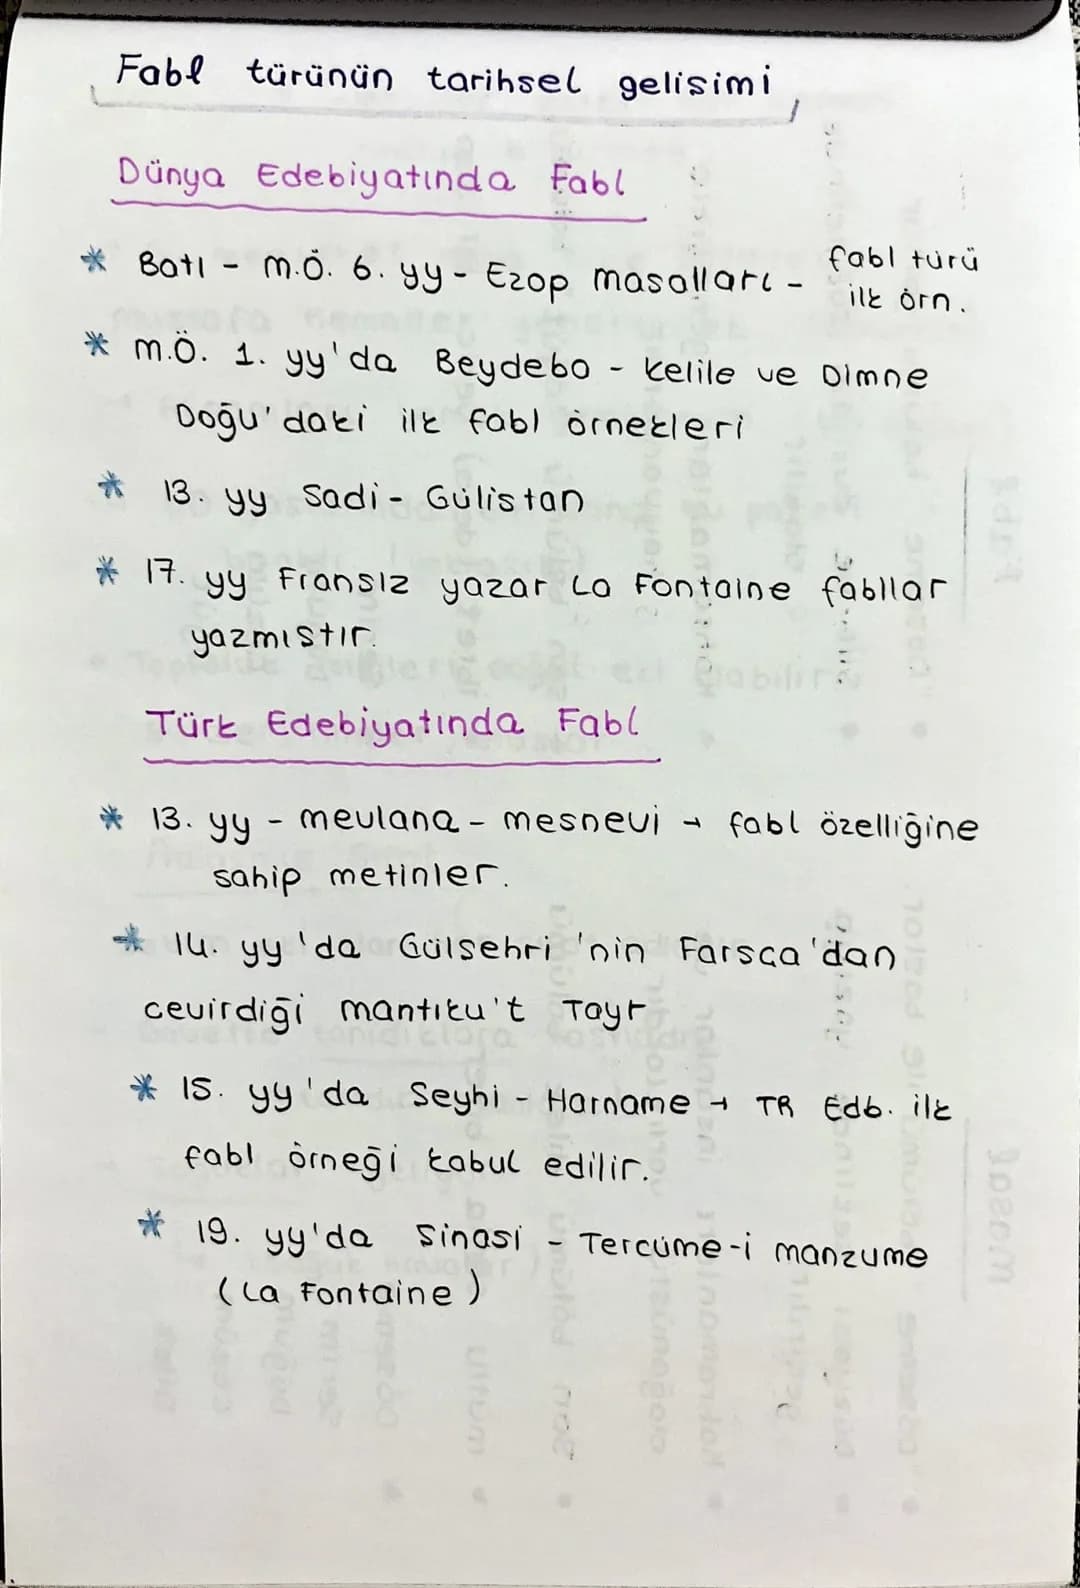 Fabl türünün tarihsel gelisimi
Dünya Edebiyatında Fabl
* Batı - M.Ö. 6. yy - Ezop masalları - fabl türü
ilk örn.
* M.Ö. 1. yy'da Beydebo - Kelile ve Dimne
Doğu'daki ilk fabl örnekleri
* 13. yy Sadi - Gülistan
* 17. yy Fransız yazar La Fontaine fabllar
yazmıstır.
Türk Edebiyatında Fabl
* 13. yy - mevlana - mesnevi → fabl özelliğine
sahip metinler.
* 14. yy'da Gülsehri'nin Farsca'dan
cevirdiği mantıku't Tayr
* 15. yy'da Seyhi - Harname → TR Edb. ilk
fabl örneği kabul edilir.
* 19. yy'da Sinasi - Tercüme-i manzume
(La Fontaine)